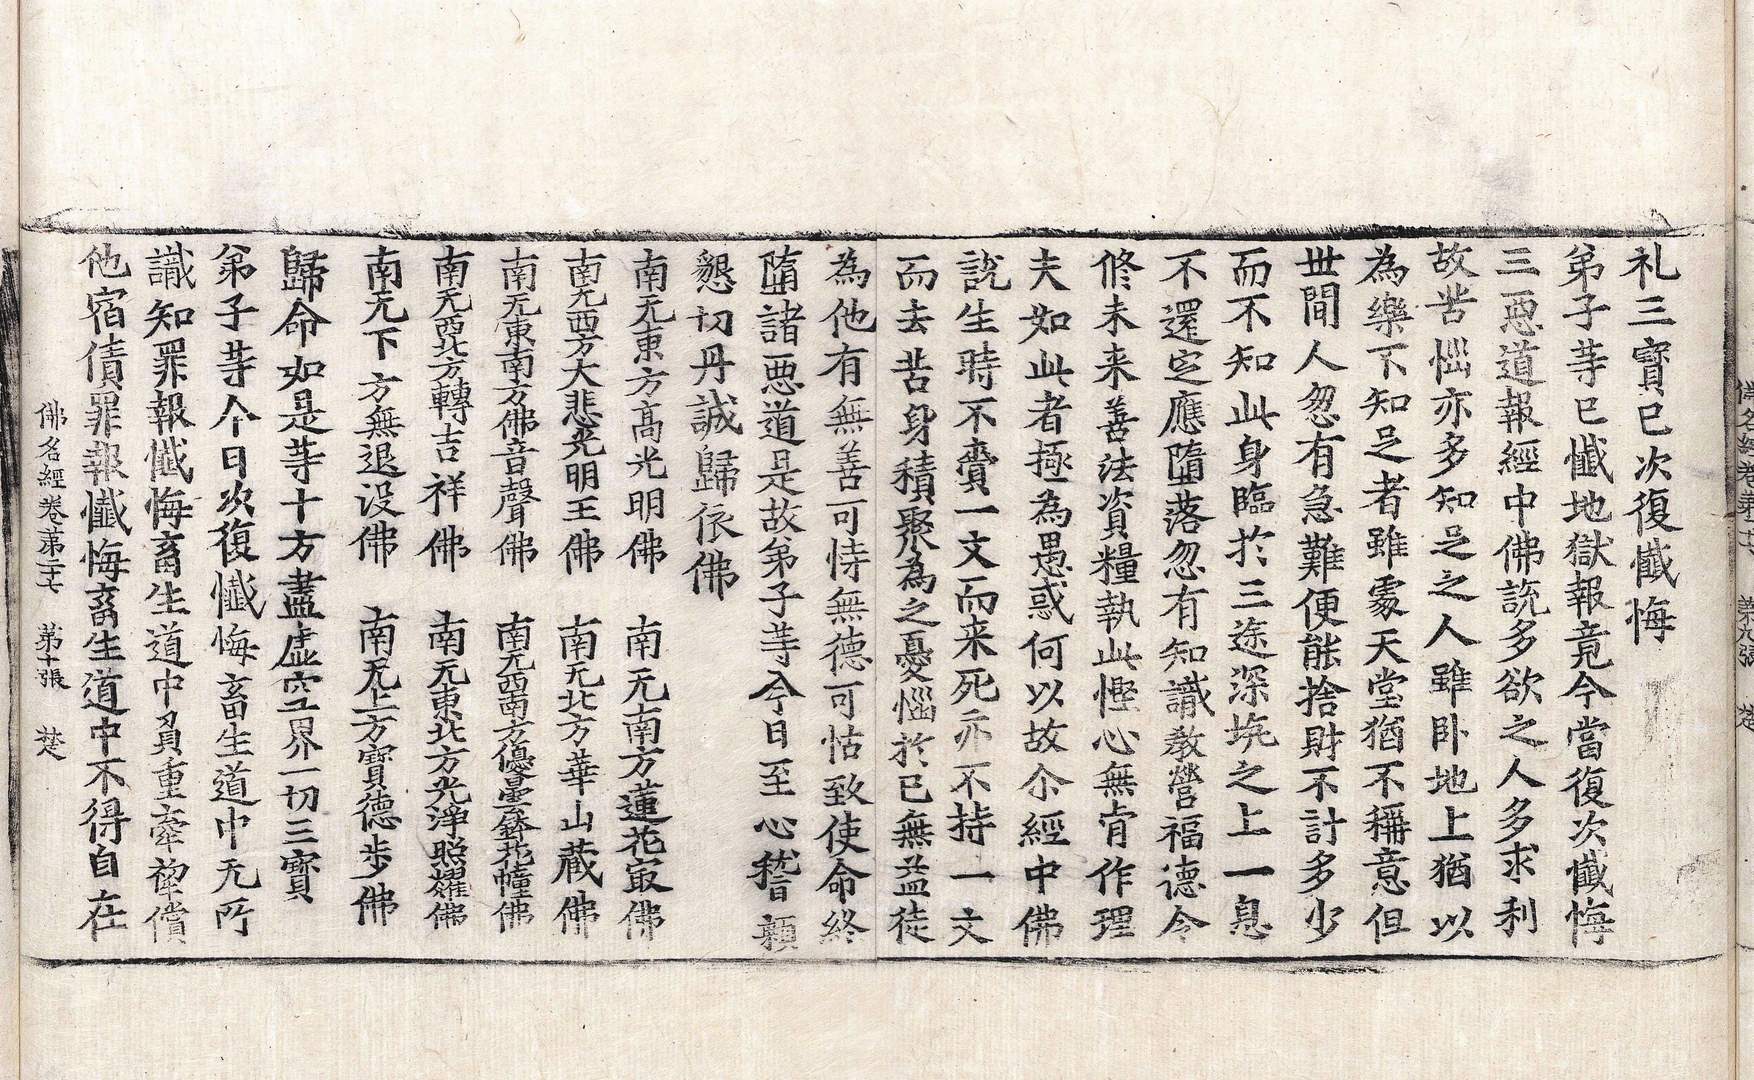 礼三寶已次復懴悔
弟子䒭已懴地獄報竟今當復次懴悔
三惡道報經中佛說多欲之人多求利
故苦惱亦多知足之人雖卧地上猶以
為樂不知足者雖處天堂猶不稱意但
世間人忽有急難便能捨財不計多少
而不知此身臨於三途深坑之上一息
不還定應墮落忽有知識教營福德令
修未来善法資糧執此慳心無肯作理
夫如此者極為愚惑何以故尒經中佛
說生時不賫一文而来死亦不持一文
而去苦身積聚為之憂惱於已無益徒
為他有無善可恃無德可怙致使命終
墮諸惡道是故弟子䒭今日至心𥡴顙
懇切丹誠歸依佛
南无東方高光明佛　南无南方蓮花㝡佛
南无西方大悲光明王佛　南无北方華山藏佛
南无東南方佛音聲佛　南无西南方優曇鉢花幢佛
南无西北方轉吉祥佛　南无東北方光淨照耀佛
南无下方無退没佛　南无上方寶德步佛
歸命如是䒭十方盡虛空界一切三寶
弟子䒭今日次復懴悔畜生道中无所
識知罪報懴悔畜生道中負重牽犂償
他宿債罪報懴悔畜生道中不得自在
佛名經卷第二十七　第十張　楚